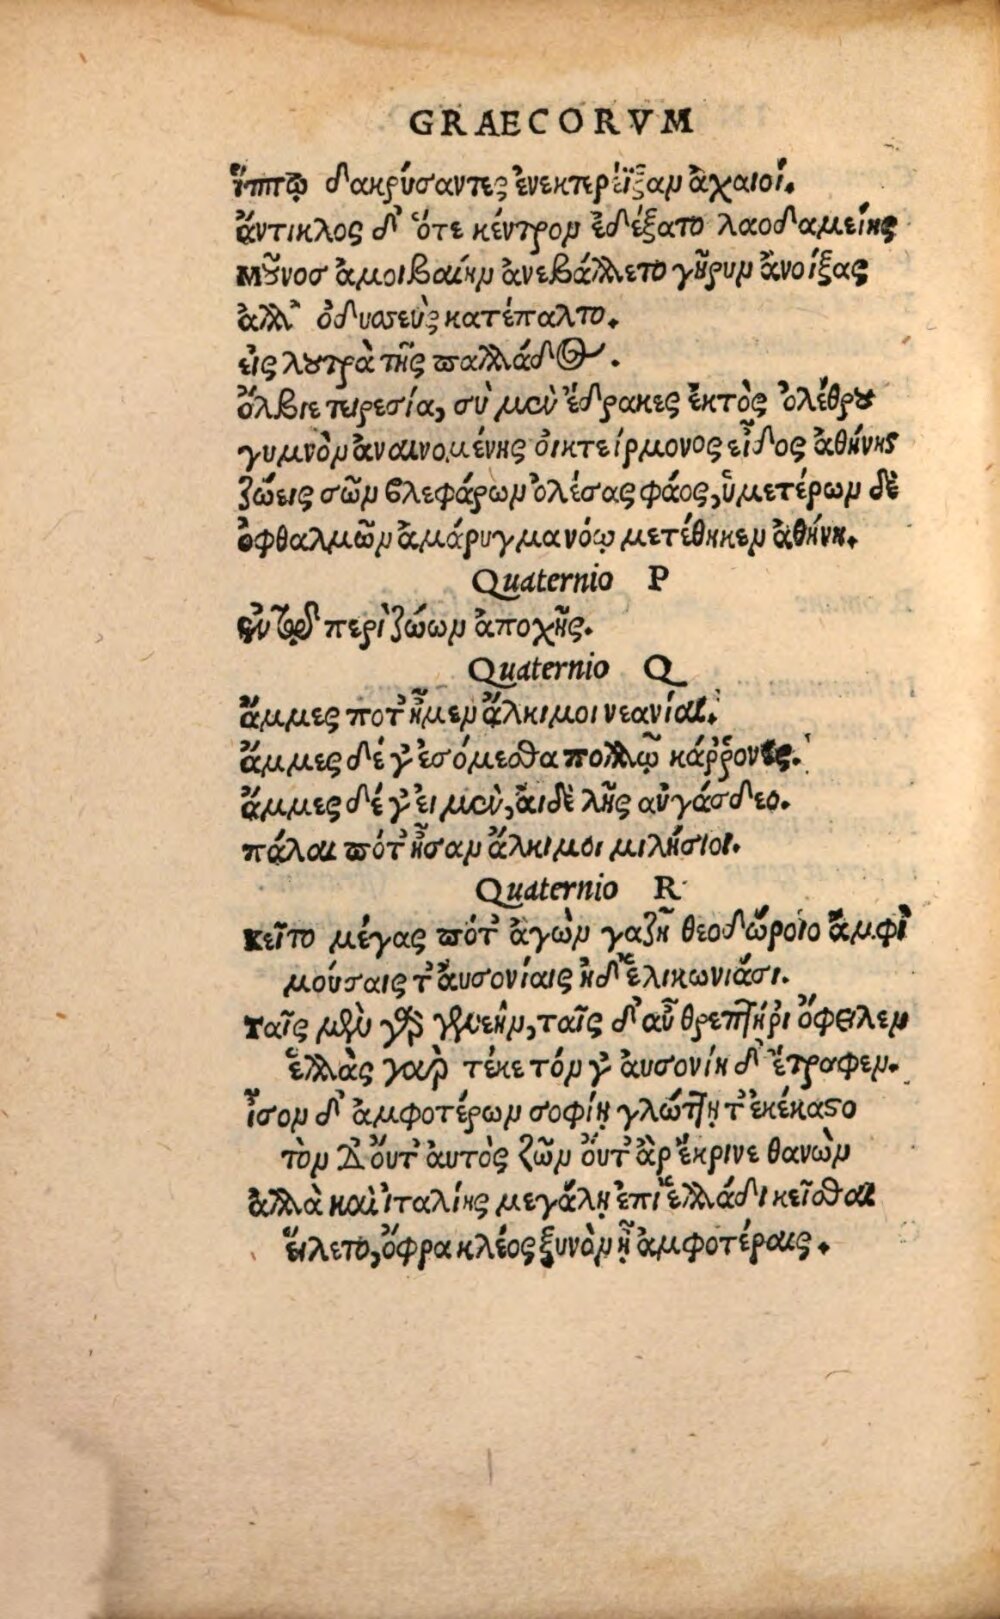 GRAECORVM
ἵππῳ δακρύσαντες ἐνεκτερέϊξαν ἀχαιοί.
ἄντικλος δ' ὅτε κέντρον ἐδέξατο λαοδαμείης
Μοῦνοσ ἀμοιβαίην ἀνεβάλλετο γῆρυν ἀνοίξας
ἀλλ' ὀδυσσεὺς κατέπαλτο.
εἰς λουτρὰ τῆς παλλάδος.
ὄλβιε τειρεσία, σὺ μὲν ἔδρακες ἐκτὸς ὀλέθρου
γυμνὸν ἀναινομένης οἰκτείρμονος εἶδος ἀθήνης
ζώεις σῶν βλεφάρων ὀλέσας φάος, ὑμετέρων δὲ
ὀφθαλμῶν ἀμάρυγμα νόῳ μετέθηκεν ἀθήνη.
Quaternio P
περὶ ζώων ἀποχῆς.
Quaternio Q
ἄμμες ποτ' ἦμεν ἄλκιμοι νεανίαι.
ἄμμες δέ γ' ἐσόμεσθα πολλῷ κάῤῥονες.
ἄμμες δέ γ' εἰμὲν, αἰδὲ λῆς αὐγάσδεο.
πάλαι πότ' ἦσαν ἄλκιμοι μιλήσιοι.
Quaternio R
Κεῖτο μέγας πότ' ἀγὼν γαζῆ θεοδώροιο ἄμφὶ
μούσαις τ' αὐσονίαις ἠδ' ἑλικωνιάσι.
Ταῖς μὲν γὰρ γενεὴν, ταῖς δ' αὖ θρεπτήρι' ὄφειλεν
ἑλλὰς γαρ̀ τέκε τόν γ' αὐσονίη δ' ἔτραφεν.
ἶσον δ' ἀμφοτέρων σοφίῃ γλώττῃ τ' ἐκέκαστο
τὸν Δ' οὔτ' ἀυτὸς ζῶν οὔτ' ἀρ' ἔκρινε θανὼν
ἀλλὰ καὶ ἰταλίης μεγάλῃ ἐπὶ ἑλλάδι κεῖσθαι
εἵλετο, ὄφρα κλέος ξυνὸν ᾖ ἀμφοτέραις.